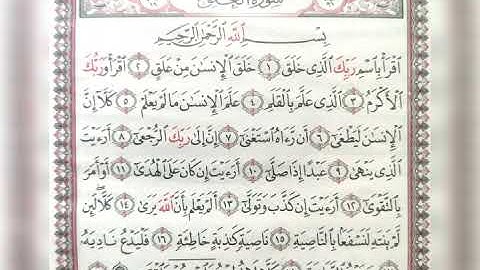 سورة العلق
بسم الله الرحمن الرحيم
اقرأ باسم ربك الذي خلق ١ خلق الإنسان من علق ٢ اقرأ وربك
الأكرم ٣ الذي علم بالقلم ٤ علم الإنسان ما لم يعلم ٥ كلا إن
الإنسان ليطغى ٦ أن رءاه استغنى ٧ إن إلى ربك الرجعى ٨ أرءيت
الذي ينهى ٩ عبدا إذا صلى ١٠ أرءيت إن كان على الهدى ١١ أو أمر
بالتقوى ١٢ أرءيت إن كذب وتولى ١٣ ألم يعلم بأن الله يرى ١٤ كلا لئن
لم ينته لنسفعا بالناصية ١٥ ناصية كاذبة خاطئة ١٦ فليدع ناديه